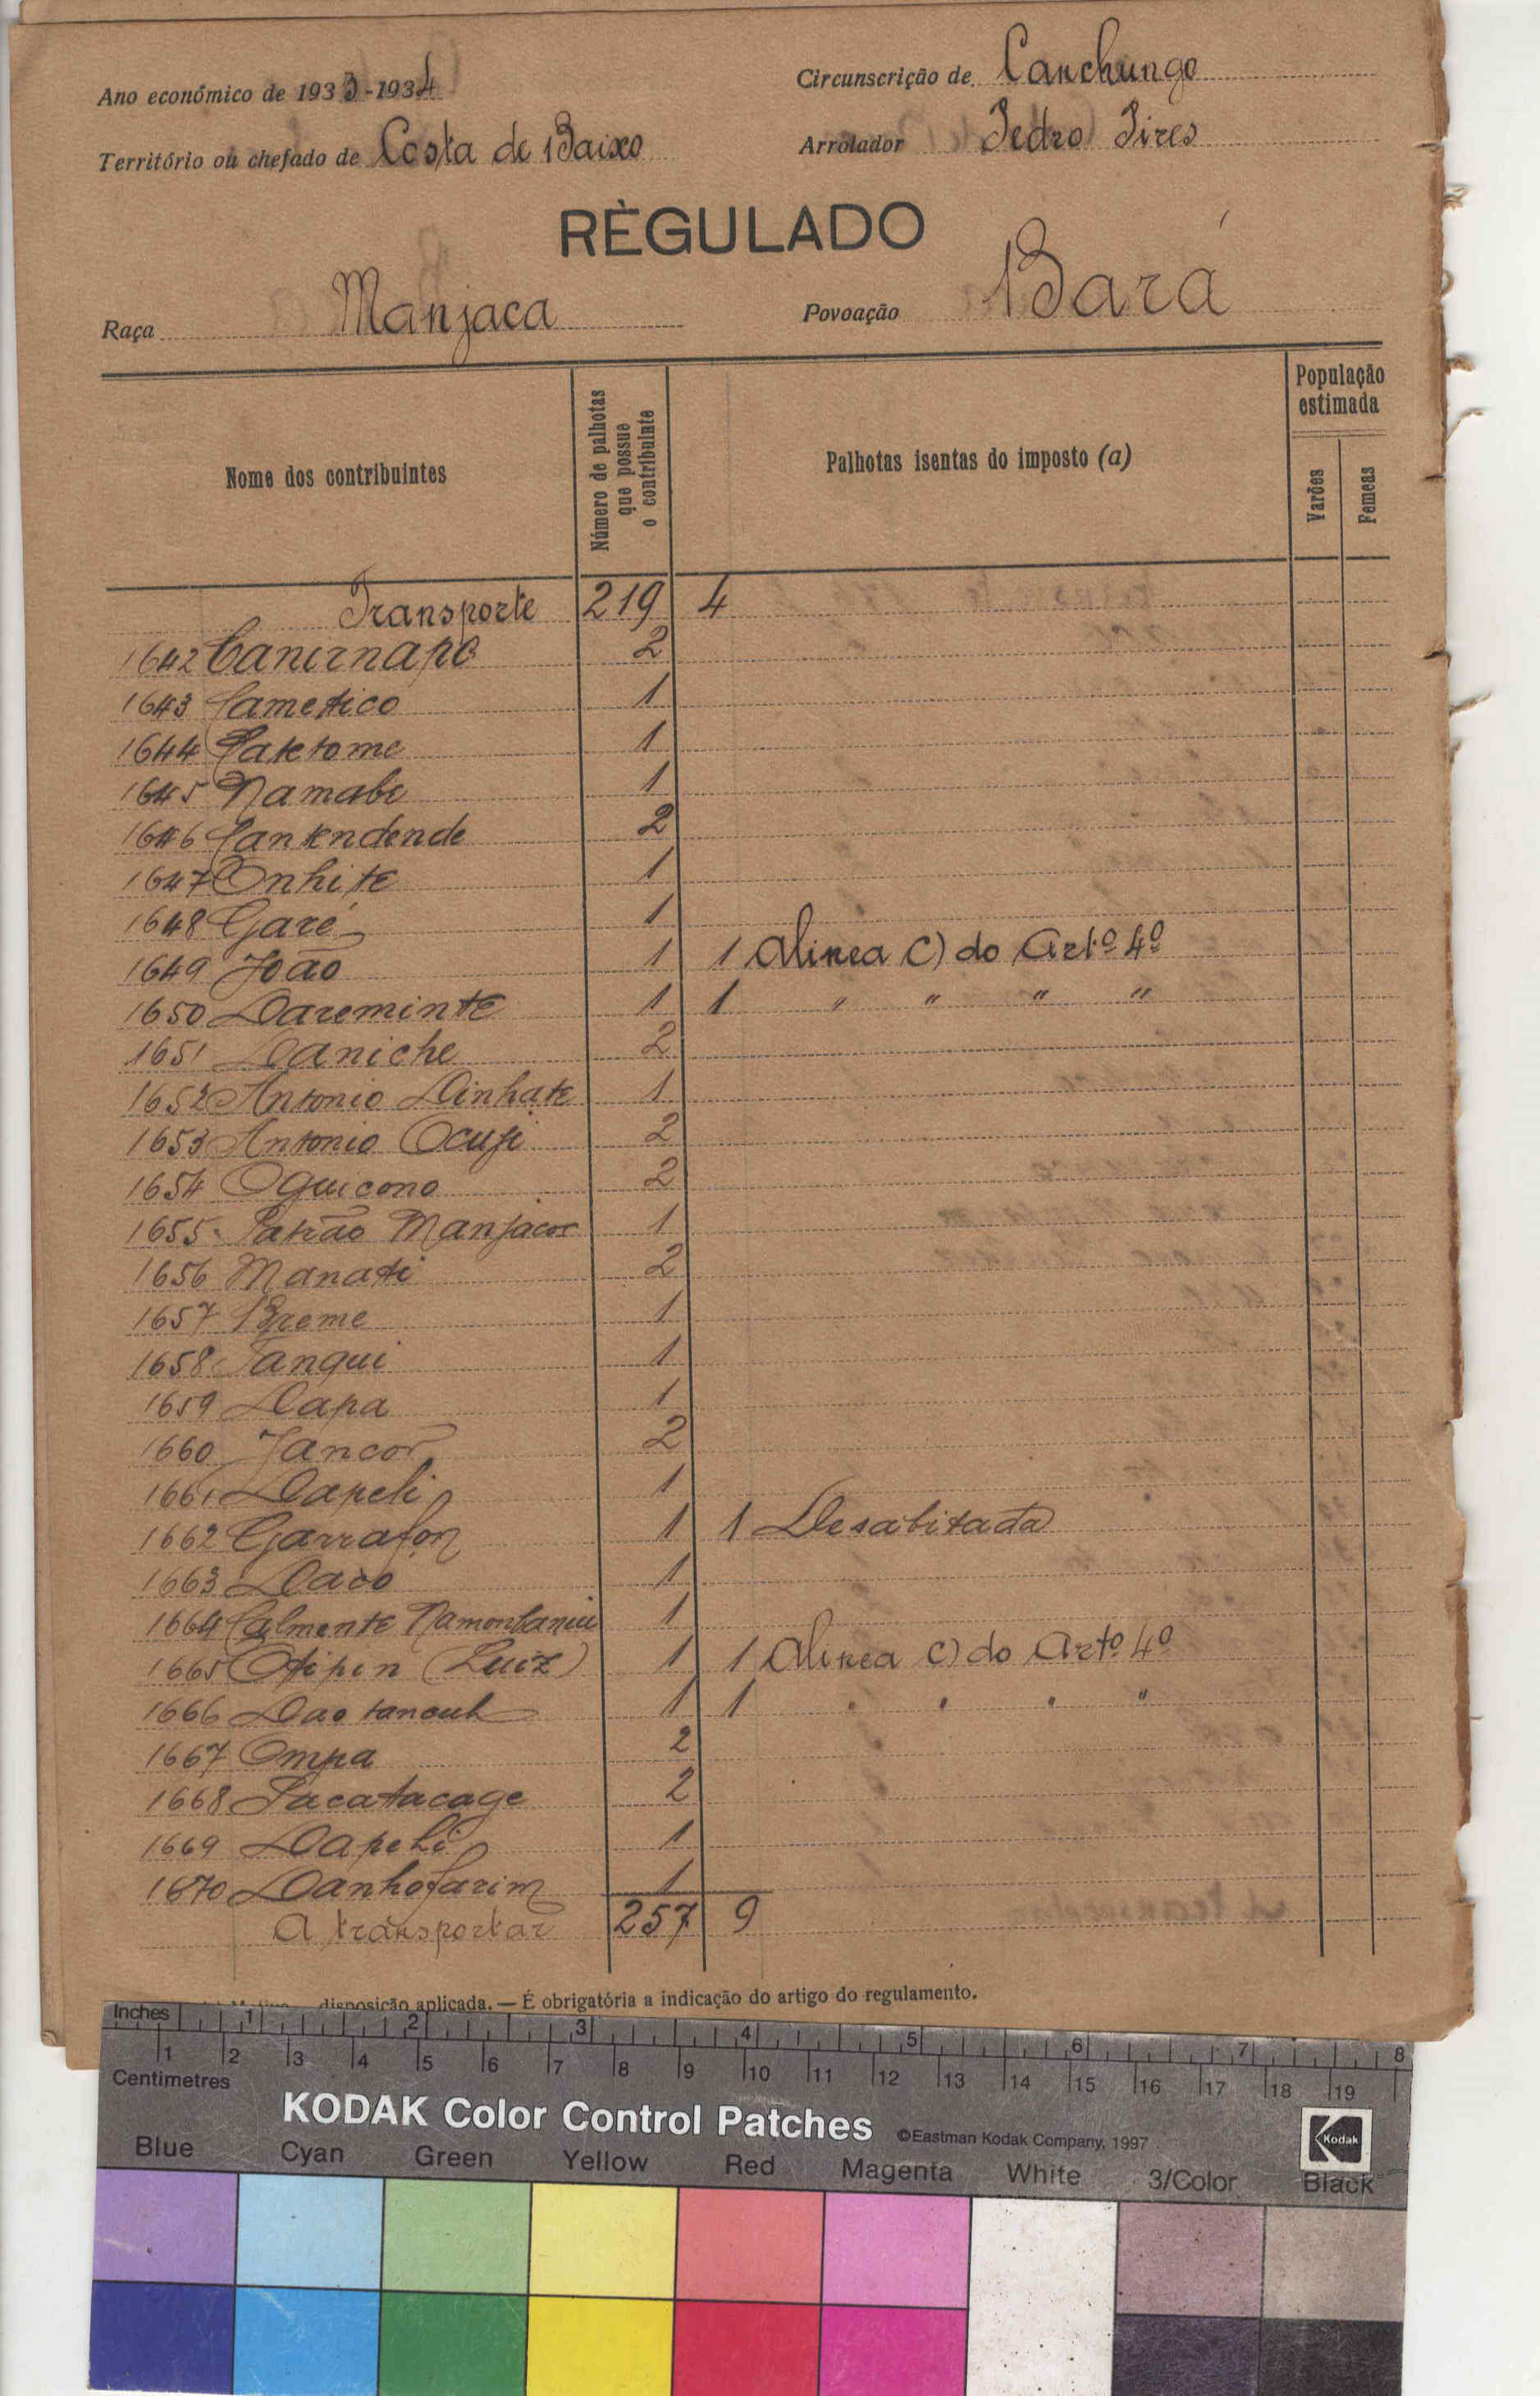 Ano económico de 1933-1934
Circunscrição de Canchungo
Território ou chefado de Costa de Baixo
Arrolador Pedro Pires
RÈGULADO
Raça Manjaca
Povoação Bará
Nome dos contribuintes
Número de palhotas que possue o contribuinte
Palhotas isentas do imposto (a)
População estimada
Varões
Femeas
Transporte 219 4
1642 Canirnapo 2
1643 Cametico 1
1644 Patetome 1
1645 Namabe 1
1646 Cantendende 2
1647 Onhite 1
1648 Garé 1
1649 João 1 1 Alinea C) do Artº 4º
1650 Dareminte 1 1 " " " "
1651 Daniche 2
1652 Antonio Dinhate 1
1653 Antonio Ocufi 2
1654 Oguicono 2
1655 Patrão Manjacor 1
1656 Manati 2
1657 Breme 1
1658 Tanqui 1
1659 Dapa 1
1660 Jancor 2
1661 Dapeli 1
1662 Garrafon 1 1 Desabitada
1663 Daoo 1
1664 Calmente 1
1665 Otipin (Luiz) 1 1 Alinea C) do Artº 4º
1666 Dao 1 1 " " " "
1667 Ompa 2
1668 Pacatacage 2
1669 Dapeli 1
1670 Danhofarim 1
A transportar 257 9
disposição aplicada. — É obrigatória a indicação do artigo do regulamento.
Inches 1 2 3 4 5 6 7 8
1 2 3 4 5 6 7 8 9 10 11 12 13 14 15 16 17 18 19
Centimetres
KODAK Color Control Patches ©Eastman Kodak Company, 1997 Kodak
Blue Cyan Green Yellow Red Magenta White 3/Color Black